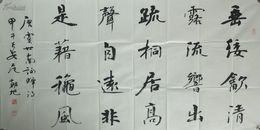 垂緌飲清
露流響出
疏桐居高
聲自遠非
是藉秋風
唐虞世南詠蟬詩